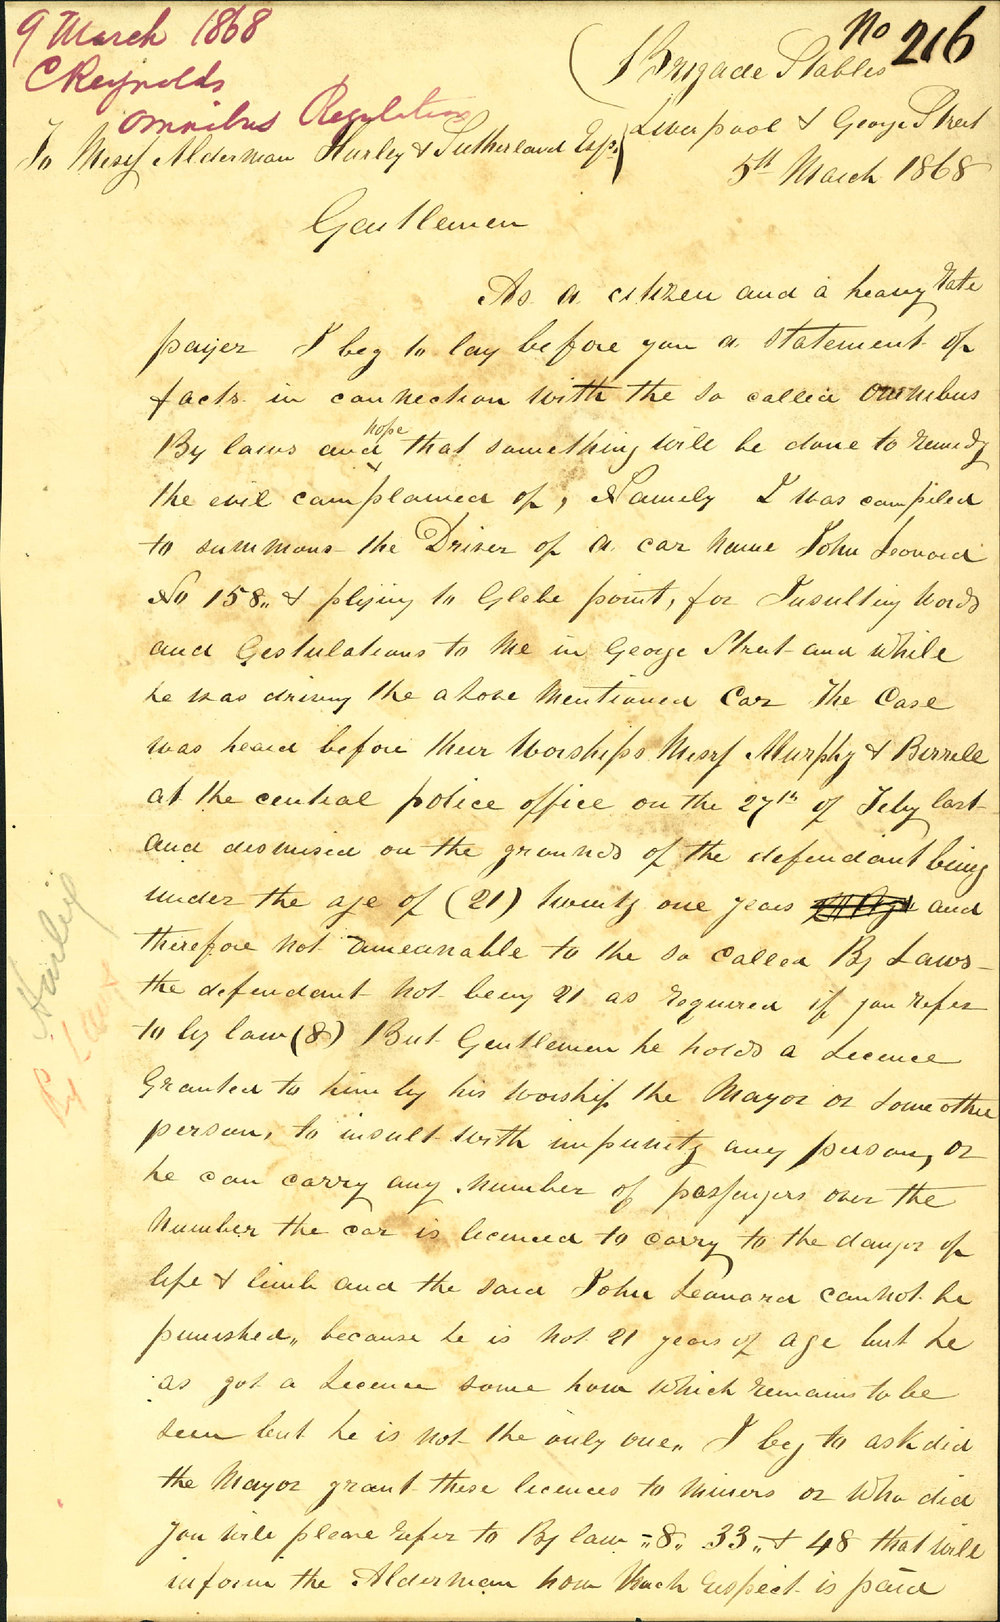 No 216
9 March 1868
C Reynolds
Omnibus Regulation
Brigade Stables
Liverpool & George Street
To Messrs Alderman Hurley & Sutherland Esqs
5th March 1868
Gentlemen
As a citizen and a heavy rate
payer I beg to lay before you a statement of
facts in connection with the so called omnibus
By laws and hope that something will be done to remedy
the evil complained of, Namely I was compiled
to summons the Driver of a car name John Leonard
No 158„ & plying to Glebe point, for Insulting words
and Gestulations to me in George Street and while
he was driving the above mentioned Car The Case
was heard before their Worships Messrs Murphy & Birrell
at the central police office on the 27th of Feby last
and dismised on the grounds of the defendant being
under the age of (21) twenty one years and
therefore not ameanable to the so called By Laws
the defendant not being 21 as required if you refer
to by law (8) But Gentlemen he holds a Licence
Granted to him by his worship the Mayor or some other
person, to insult with impunity any person, or
he can carry any number of passengers over the
number the car is licenced to carry to the danger of
life & limb and the said John Leonard cannot be
punished„ because he is not 21 years of age but he
as got a Licence some how which remains to be
seen but he is not the only one„ I beg to ask did
the Mayor grant these licences to miners or who did
you will please refer to By law „8„ 33„ & 48 that will
inform the Alderman how Much respect is paid
Hurley
By Laws